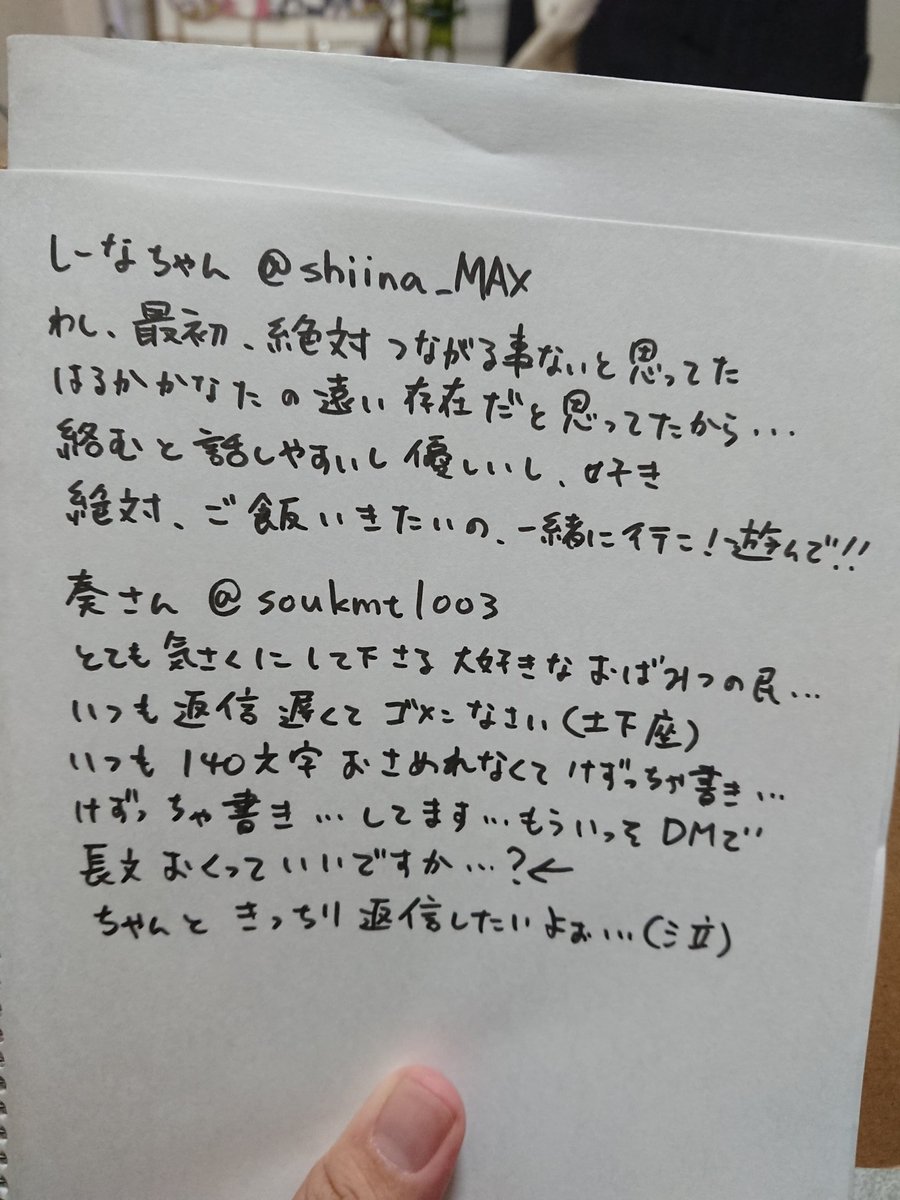 しーなちゃん @shiina_MAX
わし、最初、絶対つながる事ないと思ってた
はるかかなたの遠い存在だと思ってたから...
絡むと話しやすいし優しいし、好き
絶対、ご飯いきたいの、一緒に行こ!遊んで!!
奏さん @soukmt1003
とても気さくにして下さる大好きなおばみつの民...
いつも返信遅くてゴメンなさい(土下座)
いつも140文字おさめれなくてけずっちゃ書き...
けずっちゃ書き...してます...もういっそDMで
長文おくっていいですか...?←
ちゃんときっちり返信したいよぉ...(泣)